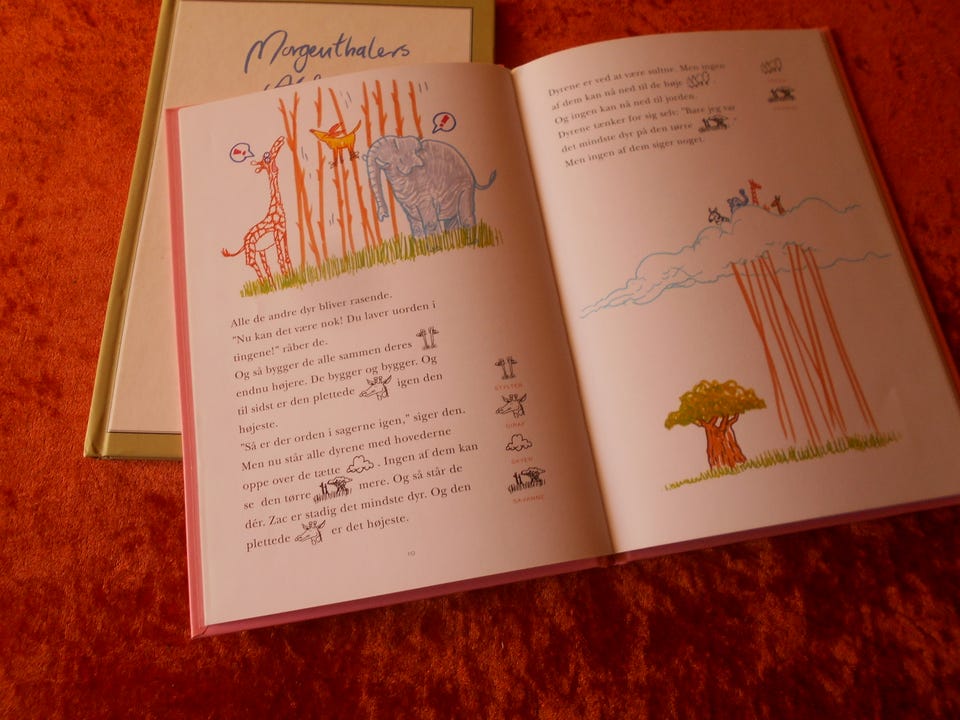 Morgenthalers
Alle de andre dyr bliver rasende.
"Nu kan det være nok! Du laver uorden i
tingene!" råber de.
Og så bygger de alle sammen deres
endnu højere. De bygger og bygger. Og
til sidst er den plettede igen den
højeste.
"Så er der orden i sagerne igen," siger den.
Men nu står alle dyrene med hovederne
oppe over de tætte . Ingen af dem kan
se den tørre mere. Og så står de
dér. Zac er stadig det mindste dyr. Og den
plettede er det højeste.
STYLTER
GIRAF
SKYER
SAVANNE
19
Dyrene er ved at være sultne. Men ingen
af dem kan nå ned til de høje
Og ingen kan nå ned til jorden.
Dyrene tænker for sig selv: "Bare jeg var
det mindste dyr på den tørre
Men ingen af dem siger noget.